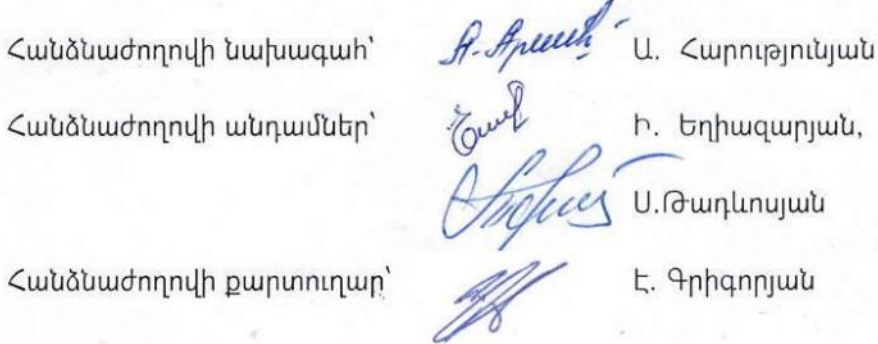 Հանձնաժողովի նախագահ՝ Ա. Հարությունյան
Հանձնաժողովի անդամներ՝ Ի. Եղիազարյան,
Ս.Թադևոսյան
Հանձնաժողովի քարտուղար՝ Է. Գրիգորյան